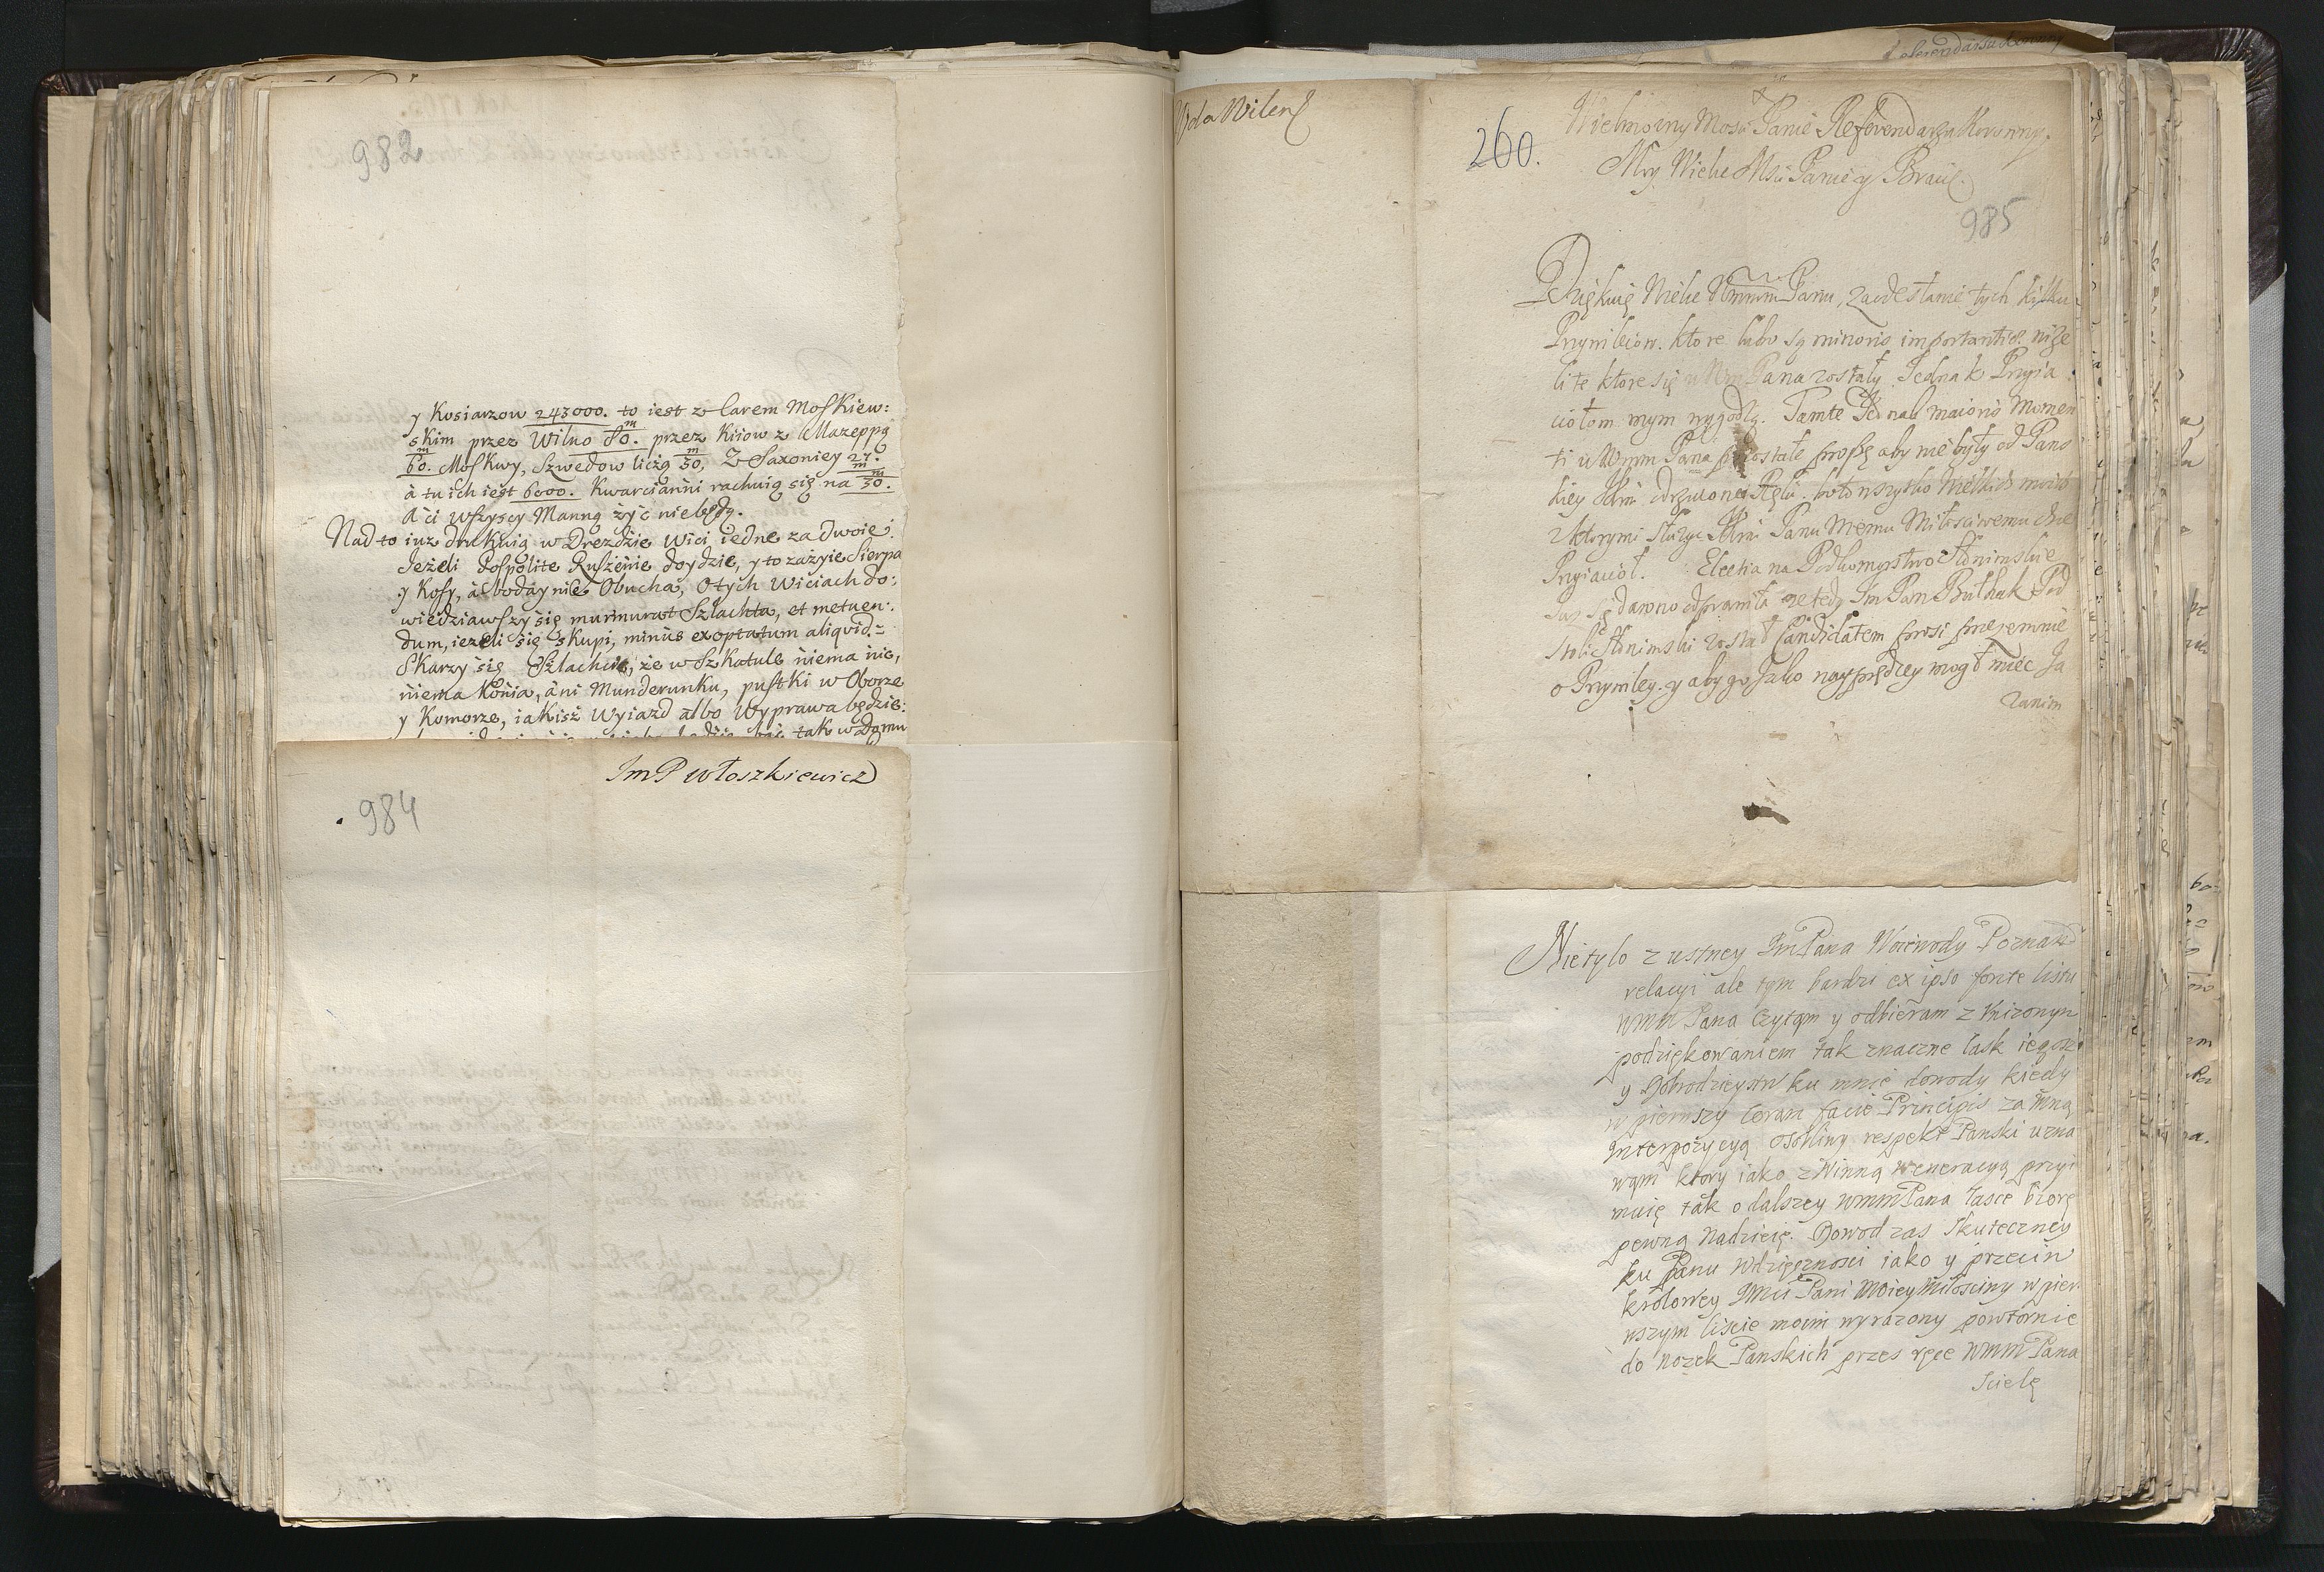 982
y Kosiarzow 243000. to iest z Carem Moskiew:
skim przez Wilno 80.m przez Kiiow z Mazeppą
60.m Moskwy, Szwedow liczą 30,m Z Saxoniey 27.m
à tu ich iest 6000. Kwarcianni rachuią się na 30.m
A ci wszyscy Manną żyć niebędą.
Nad to iuz drukuią w Drezdzie Wici iedne za dwoie:
Jeżeli Pospolite Ruszenie doydzie, y to zażyie Sierpa
y Kosy, à boday nie Obucha, O tych Wiciach do:
wiedziawszy się murmurat Szlachta, et metuen:
dum, iezeli się skupi, minus exoptatum aliquid.
Skarzy się Szlachcic, że w Szkatule niema nic,
niema Konia, ani Munderunku, pustki w Oborze
y Komorze, iakisz Wyiazd albo Wyprawa będzie:
tak w domu
ImP Włoszkiewicz
984
Wda Wilen
260.
Wielmozny Mosci Panie Referendarzu Koronny.
Mny Wielce Msci Panie y Bracie.
985
Dziękuię Wielce Wmmm Panu, za odesłanie tych kilku
Przywileiow. ktore lubo są minoris importantiæ niże
li te ktore się u Wm Pana zostały. Jednak Przyia
ciołom mym wygodzą. Tamte Jednak maioris Momen
ti u Wmm Pana pozostałe proszę aby nie były od Pans
kiey Kmci odrzucone Ręki. bo to wszytko
z ktorymi służyc Kmci Panu Memu Miłosciwemu chce
Przyiaciol. Elekcia na Podkomorstwo Słonimskie
Juz się dawno odprawiła ze tedy Im Pan Bułhak Pod
stoli Słonimski został Candidatem prosi przezemnie
o Przywiley. y aby go Jako nayprędzey mogł miec Ja
zanim
Nie tylo z ustney ImPana Woiewody Poznans
relacyi ale tym bardzi ex ipso fonte listu
WMM Pana Czytąm y odbieram z Vnizonym
podziękowaniem tak znaczne łask iego
y Dobrodzieystw ku mnie dowody kiedy
w pierwszy coram facie Principis za mną
Interpozycyą osobliwy respekt Panski uzna
wąm ktory iako z Winną weneracyą przyi
muię tak o dalszey WmmPana łasce biorę
pewną Nadzieię. Dowod zas skuteczney
ku Panu Wdzięcznosci iako y przeciw
krolowey JMci Pani Moiey Miłosciwy w pier
wszym liscie moim wyrazony powtornie
do nozek Panskich przes ręce WMM Pana
scielę